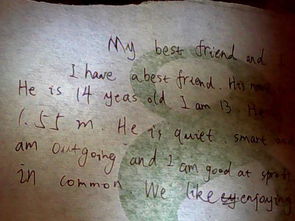 My best friend and
I have a best friend. His name
He is 14 yeas old. I am 13. He
1.55 m. He is quiet, smart and
am outgoing and I am good at sport
in common We like enjoying